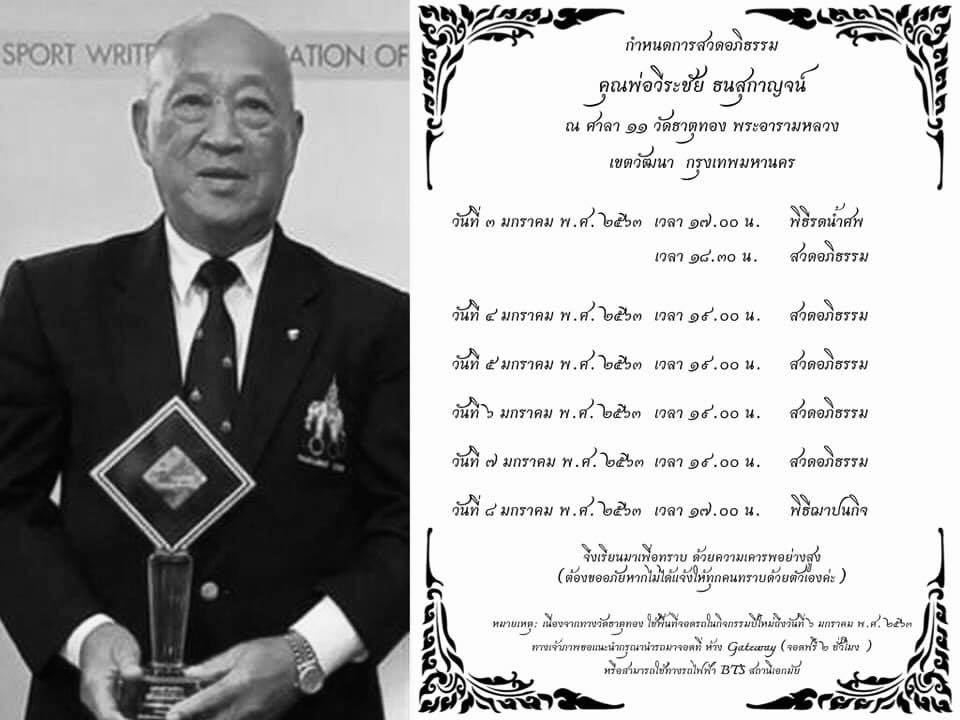 SPORT WRITE ATION OF
กำหนดการสวดอภิธรรม
คุณพ่อวีระชัย ธนสุกาญจน์
ณ ศาลา ๑๑ วัดธาตุทอง พระอารามหลวง
เขตวัฒนา กรุงเทพมหานคร
วันที่ ๓ มกราคม พ.ศ. ๒๕๖๓ เวลา ๑๗.๐๐ น. พิธีรดน้ำศพ
เวลา ๑๘.๓๐ น. สวดอภิธรรม
วันที่ ๔ มกราคม พ.ศ. ๒๕๖๓ เวลา ๑๙.๐๐ น. สวดอภิธรรม
วันที่ ๕ มกราคม พ.ศ. ๒๕๖๓ เวลา ๑๙.๐๐ น. สวดอภิธรรม
วันที่ ๖ มกราคม พ.ศ. ๒๕๖๓ เวลา ๑๙.๐๐ น. สวดอภิธรรม
วันที่ ๗ มกราคม พ.ศ. ๒๕๖๓ เวลา ๑๙.๐๐ น. สวดอภิธรรม
วันที่ ๘ มกราคม พ.ศ. ๒๕๖๓ เวลา ๑๗.๐๐ น. พิธีฌาปนกิจ
จึงเรียนมาเพื่อทราบ ด้วยความเคารพอย่างสูง
(ต้องขออภัยหากไม่ได้แจ้งให้ทุกคนทราบด้วยตัวเองค่ะ )
หมายเหตุ: เนื่องจากทางวัดธาตุทอง ใช้พื้นที่จอดรถในกิจกรรมปีใหม่ถึงวันที่ ๖ มกราคม พ.ศ. ๒๕๖๓
ทางเจ้าภาพขอแนะนำกรุณานำรถมาจอดที่ ห้าง Gateway (จอดฟรี ๒ ชั่วโมง )
หรือสามารถใช้ทางรถไฟฟ้า BTS สถานีเอกมัย